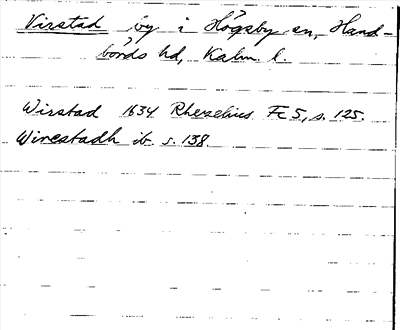 Virstad by i Högsby sn, Hand-
börds hd, Kalm l.
Wirstad 1634 Rhezelius Fc 5, s. 125.
Wirestadh ib. s. 138